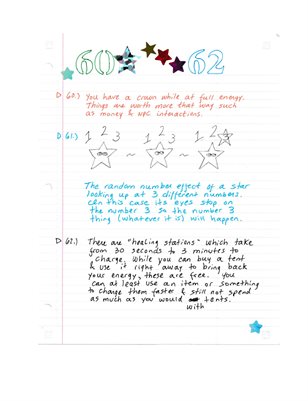 60 62
D 60.) You have a crown while at full energy.
Things are worth more that way such
as money & NPC interactions.
D 61.) 1 2 3 1 2 3 1 2 3
~ ~
The random number effect of a star
looking up at 3 different numbers.
On this case its eyes stop on
the number 3 so the number 3
thing (whatever it is) will happen.
D 62.) There are "healing stations" which take
from 30 seconds to 3 minutes to
charge. While you can buy a tent
& use it right away to bring back
your energy, these are free. You
can at least use an item or something
to charge them faster & still not spend
as much as you would tents.
with